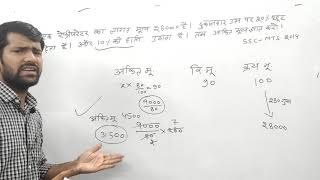 एक रेफ्रीजरेटर का लागत मूल्य 28000 है। दुकानदार उस पर 20% छूट
देता है। और 10% की हानि उठाता है। तब अंकित मूल्य ज्ञात करो।
SSC-MTS 2014
अंकित मू वि.मू क्रय मू
x × 80/100 = 90 90 100
9000/80 ↓ 280 गुणा
अंकित मू 4500 28000
31500 9000/80 × 280 7
2